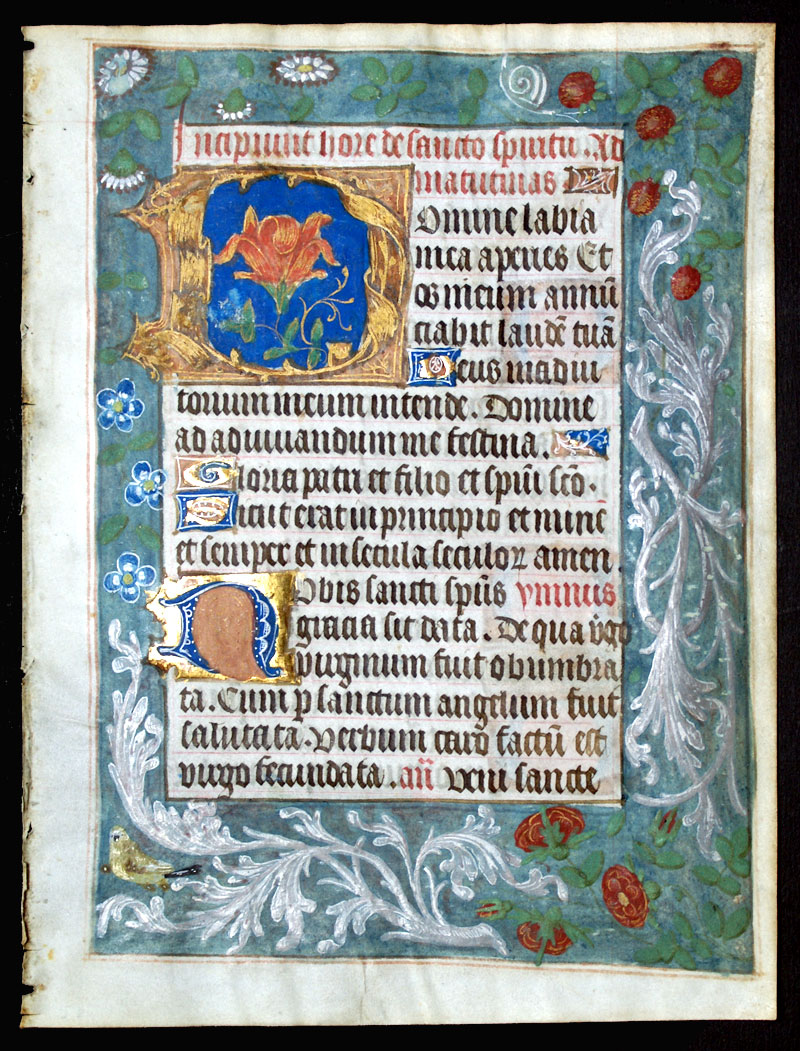 Incipiunt hore de sancto spiritu. Ad
matutinas
Domine labia
mea aperies Et
os meum annū
ciabit laudē tuā
Deus in adiu
torium meum intende. Domine
ad adiuuandum me festina.
Gloria patri et filio et spiūi scō.
Sicut erat in principio et nunc
et semper et in secula seculoꝝ amen.
Nobis sancti spūs ymnus
gracia sit data. De qua v̄go
virginum fuit obumbra
ta. Cum ꝑ sanctum angelum fuit
salutata. Verbum caro factū est
virgo fecundata. añ Veni sancte